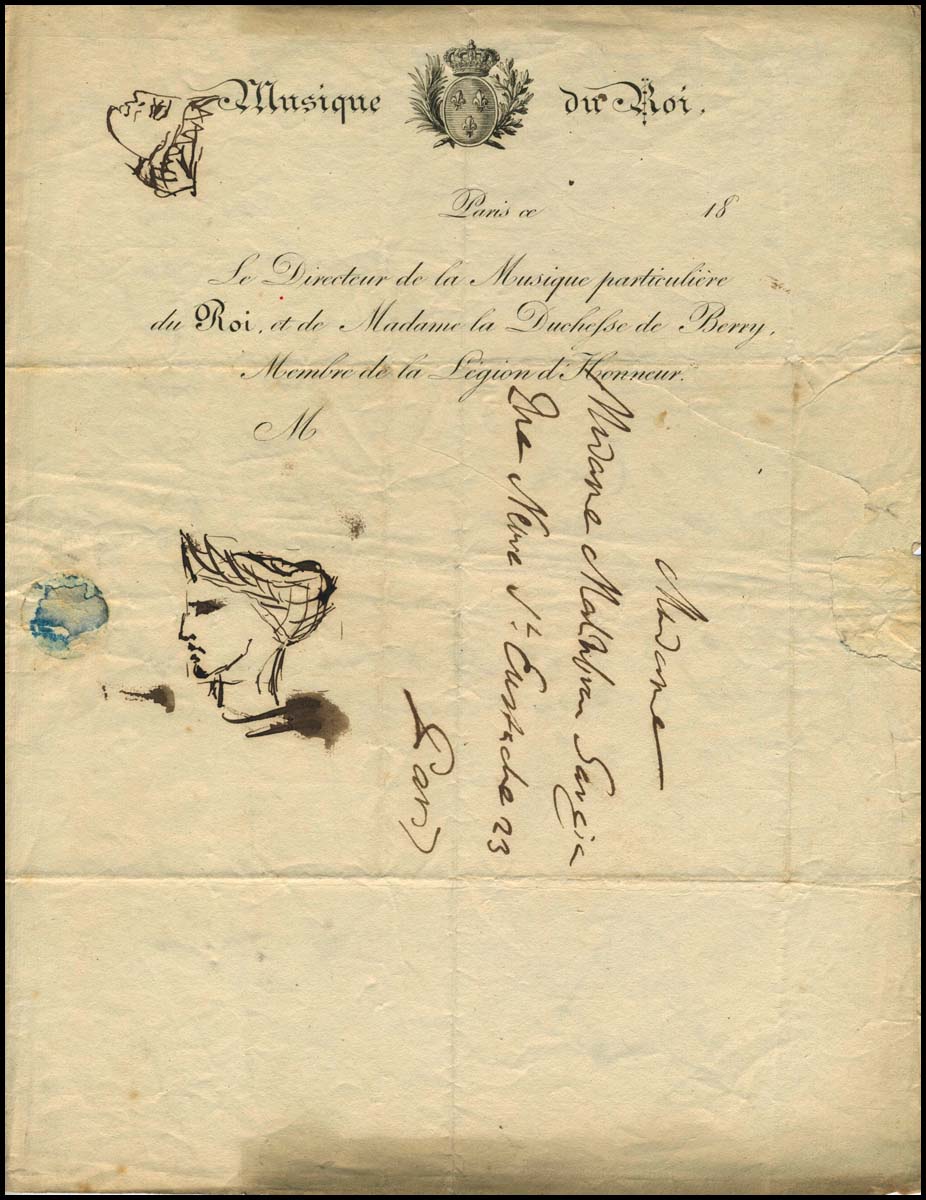 Musique du Roi.
Paris ce 18
Le Directeur de la Musique particulière
du Roi, et de Madame la Duchesse de Berry,
Membre de la Légion d'Honneur.
M
Madame
Madame Malibran Garcia
Rue Neuve St. Eustache 23
Paris